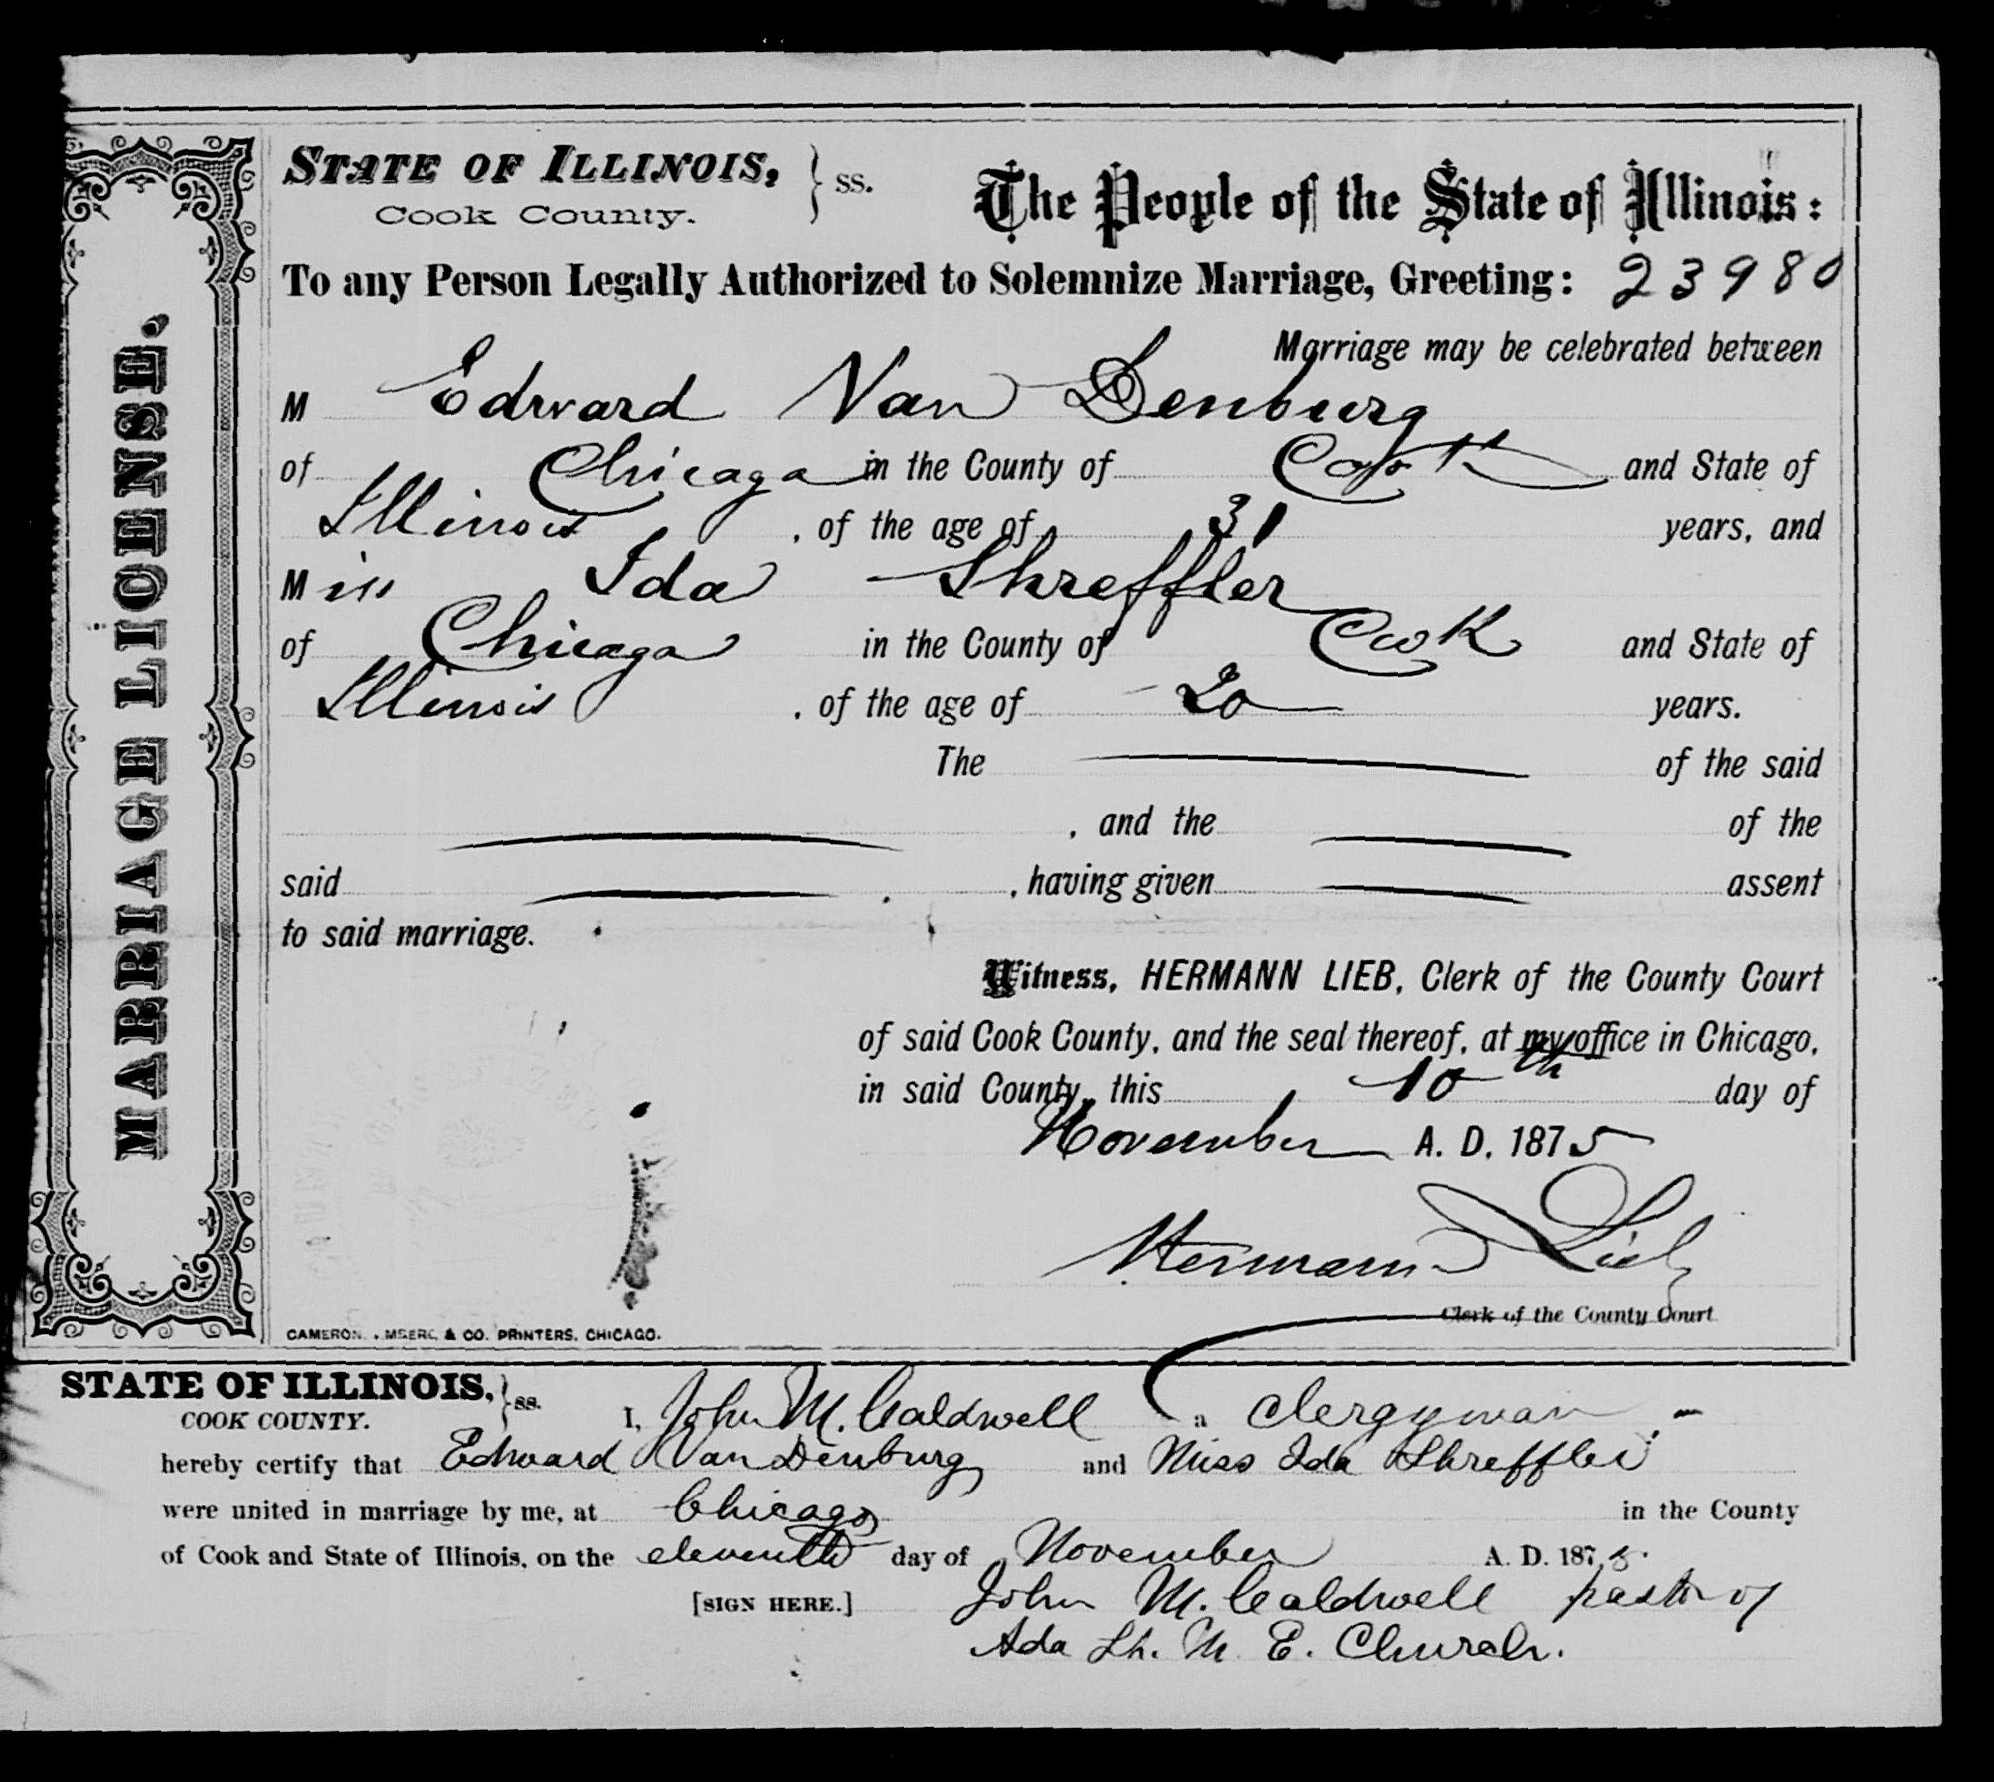 MARRIAGE LICENSE.
STATE OF ILLINOIS, } ss.
Cook County.
The People of the State of Illinois:
To any Person Legally Authorized to Solemnize Marriage, Greeting: 23980
Marriage may be celebrated between
M Edward Van Denburg
of Chicago in the County of Cook and State of
Illinois, of the age of 31 years, and
Miss Ida Shreffler
of Chicago in the County of Cook and State of
Illinois, of the age of 20 years.
The of the said
, and the of the
said , having given assent
to said marriage.
Witness, HERMANN LIEB, Clerk of the County Court
of said Cook County, and the seal thereof, at my office in Chicago,
in said County, this 10th day of
November A. D. 1875
Hermann Lieb
Clerk of the County Court
CAMERON, & CO. PRINTERS, CHICAGO.
STATE OF ILLINOIS, } ss.
COOK COUNTY.
I, John M. Caldwell a Clergyman
hereby certify that Edward Van Denburg and Miss Ida Shreffler
were united in marriage by me, at Chicago in the County
of Cook and State of Illinois, on the eleventh day of November A. D. 1875.
[SIGN HERE.] John M. Caldwell pastor of
Ada St. M. E. Church.